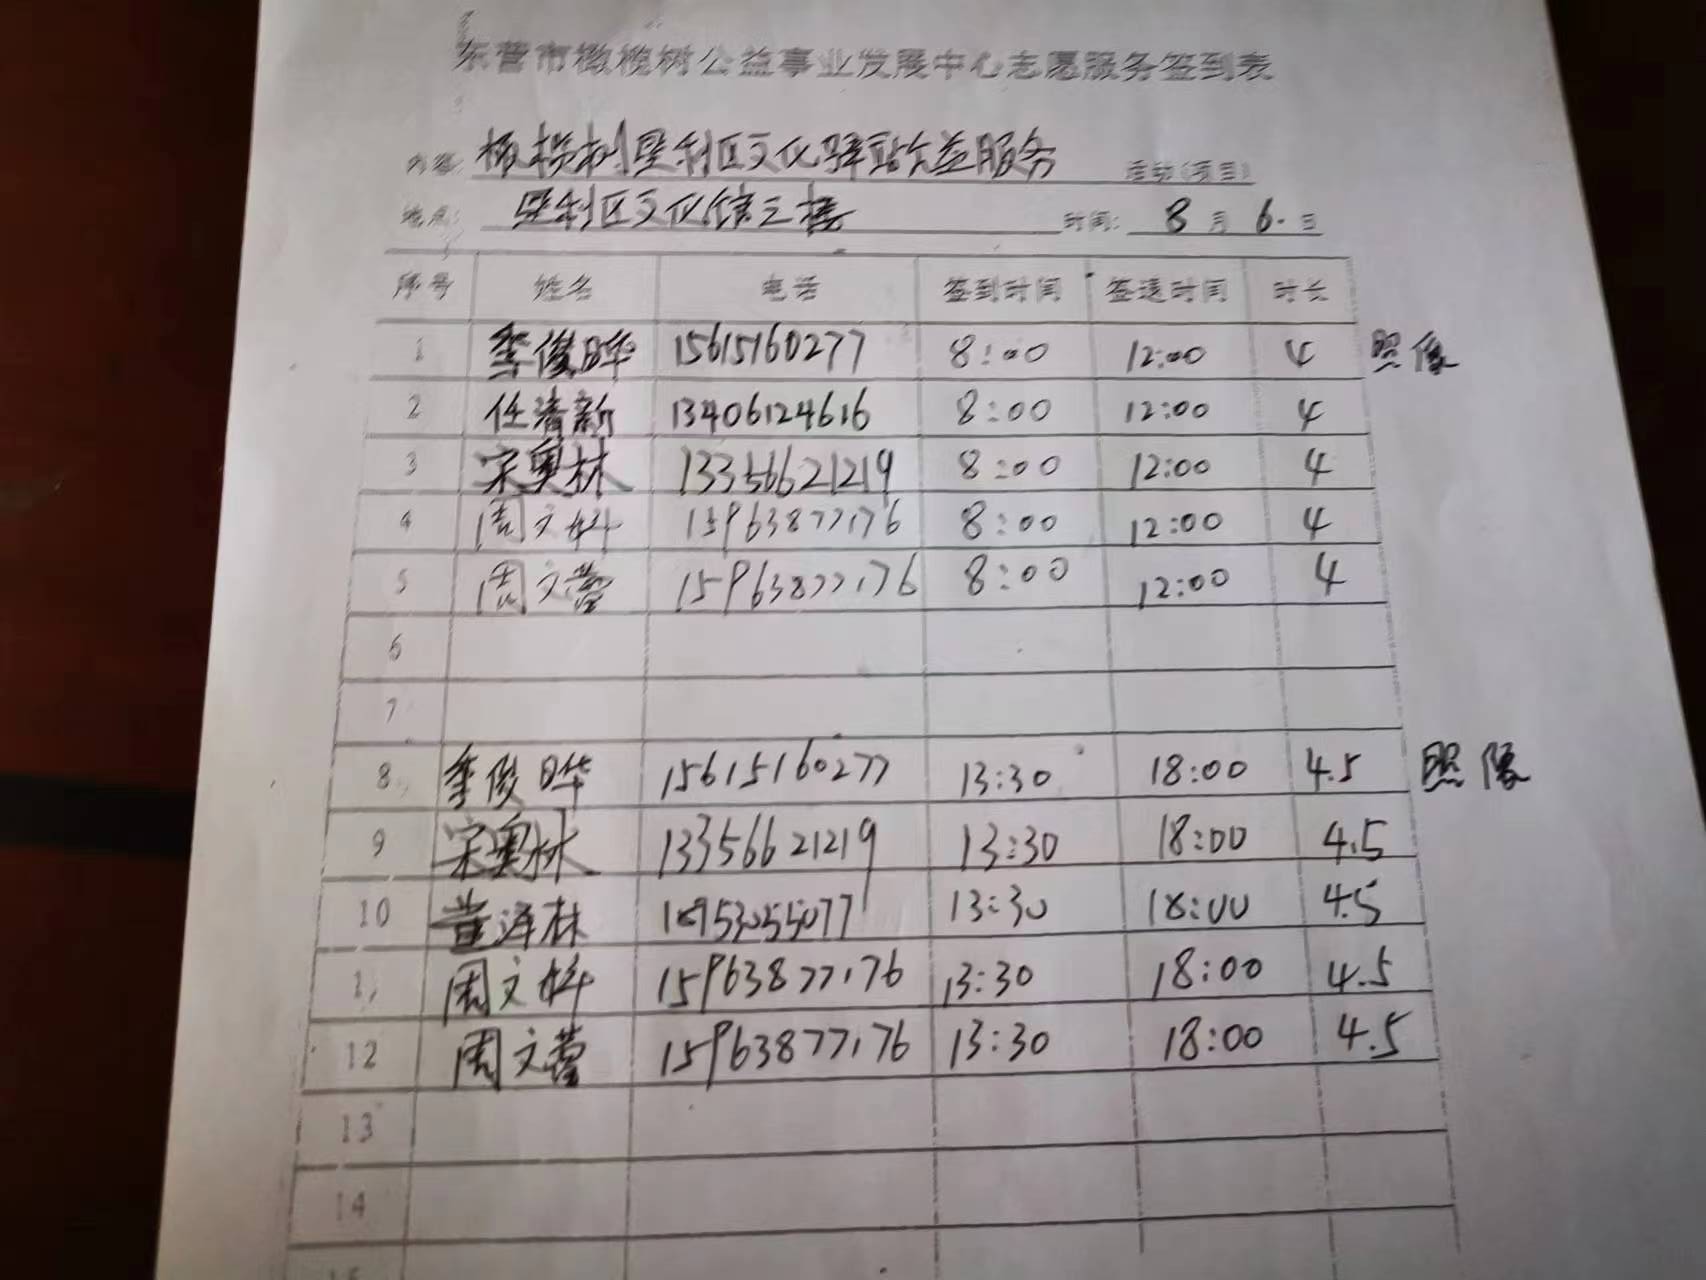 东营市橄榄树公益事业发展中心志愿服务签到表
内容: 橄榄树垦利区文化驿站公益服务 活动(项目)
地点: 垦利区文化馆三楼 时间: 8 月 6. 日
序号 姓名 电话 签到时间 签退时间 时长
1 李俊晔 15615160277 8:00 12:00 4 照像
2 任清新 13406124616 8:00 12:00 4
3 宋奥林 13356621219 8:00 12:00 4
4 周文 15963877176 8:00 12:00 4
5 周文萱 15963877176 8:00 12:00 4
6
7
8 李俊晔 15615160277 13:30 18:00 4.5 照像
9 宋奥林 13356621219 13:30 18:00 4.5
10 董泽林 18953055077 13:30 18:00 4.5
11 周文 15963877176 13:30 18:00 4.5
12 周文萱 15963877176 13:30 18:00 4.5
13
14
15